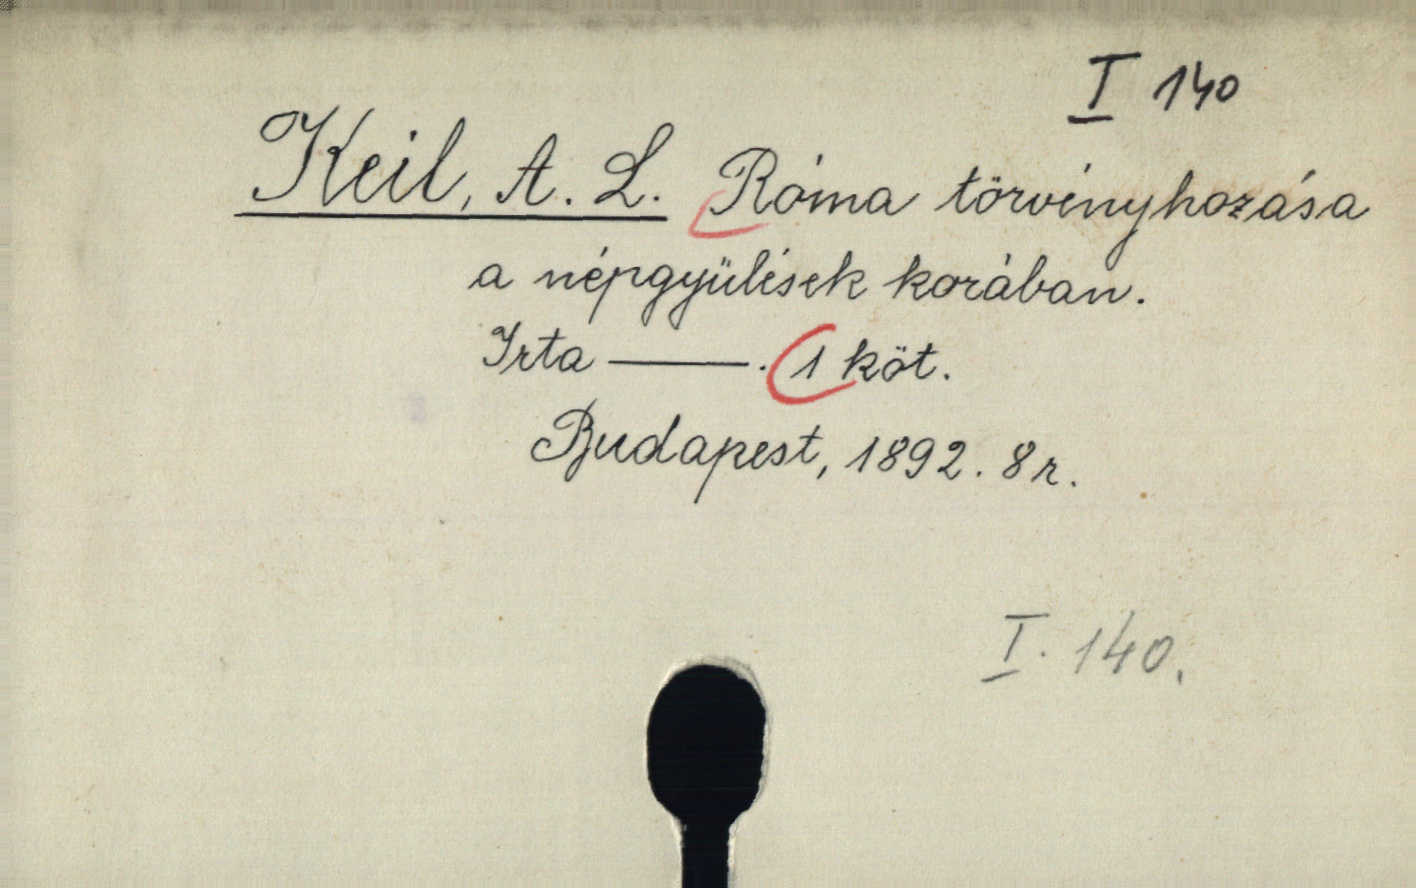 I 140
Keil, A. L. Róma törvényhozása
a népgyülések korában.
Irta ———. 1 köt.
Budapest, 1892. 8r.
I. 140.